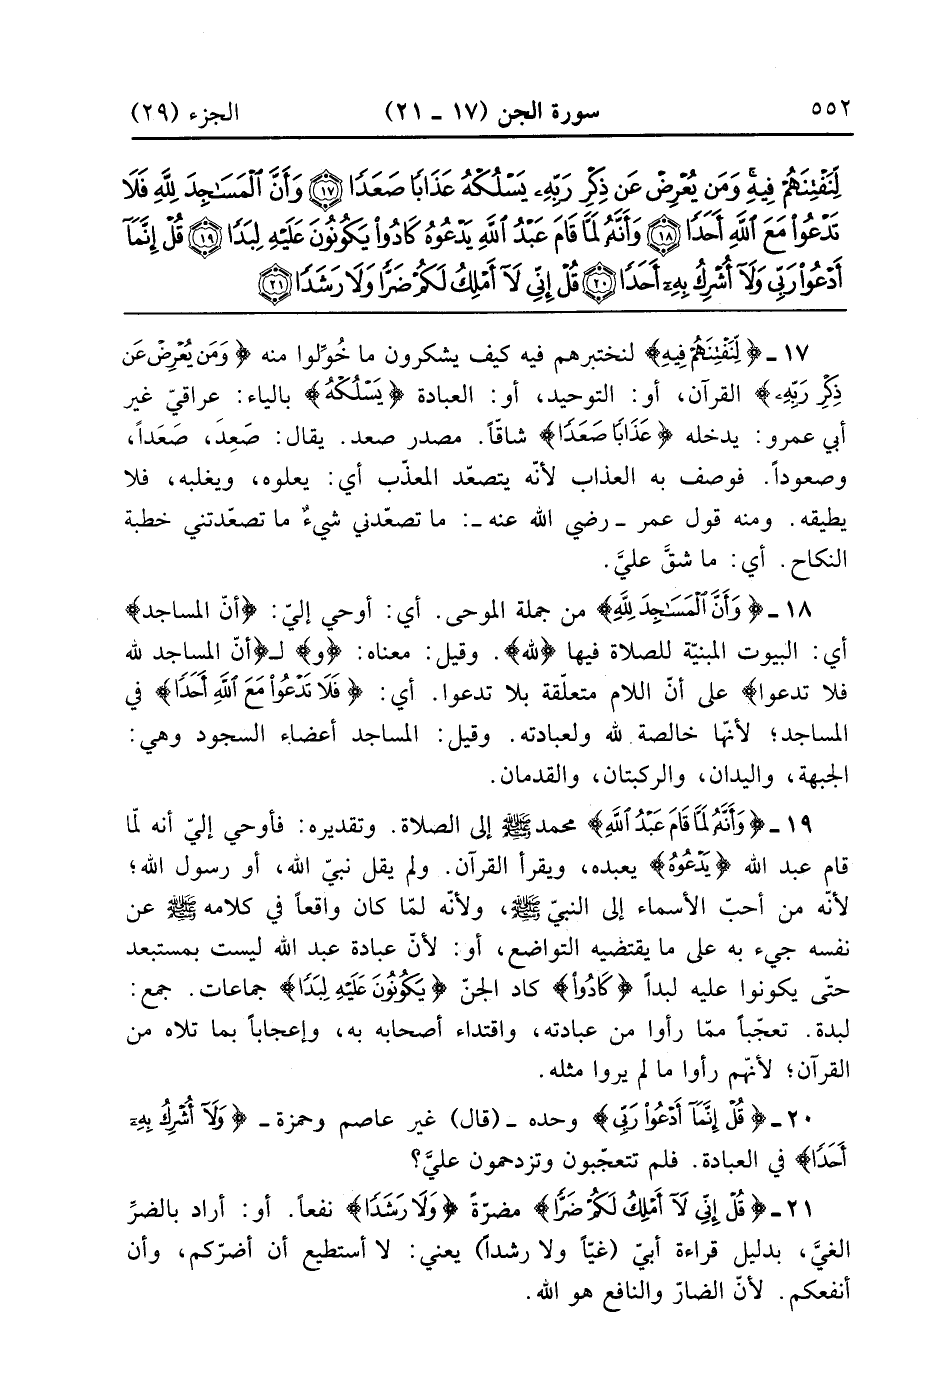 ٥٥٢ سورة الجن (١٧ ـ ٢١) الجزء (٢٩)
لِّنَفْتِنَهُمْ فِيهِ وَمَن يُعْرِضْ عَن ذِكْرِ رَبِّهِۦ يَسْلُكْهُ عَذَابًا صَعَدًا ﴿١٧﴾ وَأَنَّ ٱلْمَسَٰجِدَ لِلَّهِ فَلَا
تَدْعُوا۟ مَعَ ٱللَّهِ أَحَدًا ﴿١٨﴾ وَأَنَّهُۥ لَمَّا قَامَ عَبْدُ ٱللَّهِ يَدْعُوهُ كَادُوا۟ يَكُونُونَ عَلَيْهِ لِبَدًا ﴿١٩﴾ قُلْ إِنَّمَآ
أَدْعُوا۟ رَبِّى وَلَآ أُشْرِكُ بِهِۦٓ أَحَدًا ﴿٢٠﴾ قُلْ إِنِّى لَآ أَمْلِكُ لَكُمْ ضَرًّا وَلَا رَشَدًا ﴿٢١﴾
١٧ ـ ﴿لِّنَفْتِنَهُمْ فِيهِ﴾ لنختبرهم فيه كيف يشكرون ما خُوِّلوا منه ﴿وَمَن يُعْرِضْ عَن
ذِكْرِ رَبِّهِۦ﴾ القرآن، أو: التوحيد، أو: العبادة ﴿يَسْلُكْهُ﴾ بالياء: عراقيّ غير
أبي عمرو: يدخله ﴿عَذَابًا صَعَدًا﴾ شاقّاً. مصدر صعد. يقال: صَعِدَ، صَعَداً،
وصعوداً. فوصف به العذاب لأنّه يتصعّد المعذّب أي: يعلوه، ويغلبه، فلا
يطيقه. ومنه قول عمر ـ رضي الله عنه ـ: ما تصعّدني شيءٌ ما تصعّدتني خطبة
النكاح. أي: ما شقَّ عليَّ.
١٨ ـ ﴿وَأَنَّ ٱلْمَسَٰجِدَ لِلَّهِ﴾ من جملة الموحى. أي: أوحي إليّ: ﴿أنّ المساجد﴾
أي: البيوت المبنيّة للصلاة فيها ﴿لله﴾. وقيل: معناه: ﴿و﴾ لـ﴿أنّ المساجد لله
فلا تدعوا﴾ على أنّ اللام متعلّقة بلا تدعوا. أي: ﴿فَلَا تَدْعُوا۟ مَعَ ٱللَّهِ أَحَدًا﴾ في
المساجد؛ لأنّها خالصة لله ولعبادته. وقيل: المساجد أعضاء السجود وهي:
الجبهة، واليدان، والركبتان، والقدمان.
١٩ ـ ﴿وَأَنَّهُۥ لَمَّا قَامَ عَبْدُ ٱللَّهِ﴾ محمد ﷺ إلى الصلاة. وتقديره: فأوحي إليّ أنه لمّا
قام عبد الله ﴿يَدْعُوهُ﴾ يعبده، ويقرأ القرآن. ولم يقل نبيّ الله، أو رسول الله؛
لأنّه من أحبّ الأسماء إلى النبيّ ﷺ، ولأنّه لمّا كان واقعاً في كلامه ﷺ عن
نفسه جيء به على ما يقتضيه التواضع، أو: لأنّ عبادة عبد الله ليست بمستبعد
حتّى يكونوا عليه لبداً ﴿كَادُوا۟﴾ كاد الجنّ ﴿يَكُونُونَ عَلَيْهِ لِبَدًا﴾ جماعات. جمع:
لبدة. تعجّباً ممّا رأوا من عبادته، واقتداء أصحابه به، وإعجاباً بما تلاه من
القرآن؛ لأنّهم رأوا ما لم يروا مثله.
٢٠ ـ ﴿قُلْ إِنَّمَآ أَدْعُوا۟ رَبِّى﴾ وحده ـ (قال) غير عاصم وحمزة ـ ﴿وَلَآ أُشْرِكُ بِهِۦٓ
أَحَدًا﴾ في العبادة. فلم تتعجّبون وتزدحمون عليَّ؟
٢١ ـ ﴿قُلْ إِنِّى لَآ أَمْلِكُ لَكُمْ ضَرًّا﴾ مضرّةً ﴿وَلَا رَشَدًا﴾ نفعاً. أو: أراد بالضرِّ
الغيَّ، بدليل قراءة أبيّ (غيّاً ولا رشداً) يعني: لا أستطيع أن أضرّكم، وأن
أنفعكم. لأنّ الضارّ والنافع هو الله.